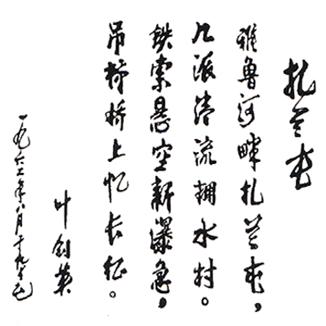 扎兰屯
雅鲁河畔扎兰屯，
几派清流拥水村。
铁索悬空新瀑急，
吊桥桥上忆长征。
叶剑英
一九六二年八月十九日